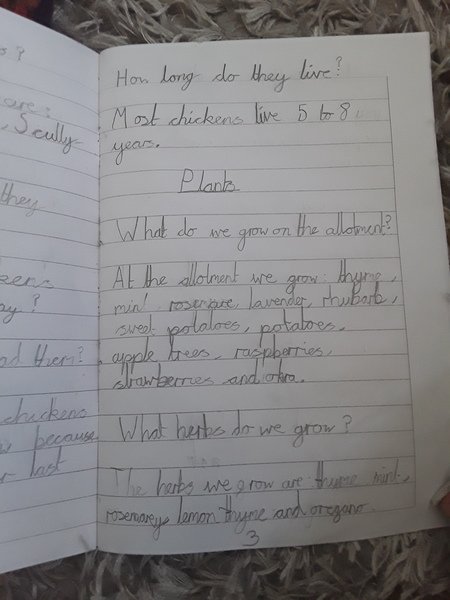 s?
are:
, Scully
they
keens
ay?
ad them?
chickens
w because
r last
How long do they live?
Most chickens live 5 to 8
years.
Plants
What do we grow on the allotment?
At the allotment we grow: thyme,
min' rosemare, lavender, rhubarb,
sweet potatoes, potatoes,
apple trees, raspberries,
strawberries and okra.
What herbs do we grow?
The herbs we grow are thyme mint,
rosemary, lemon thyme and oregano.
3